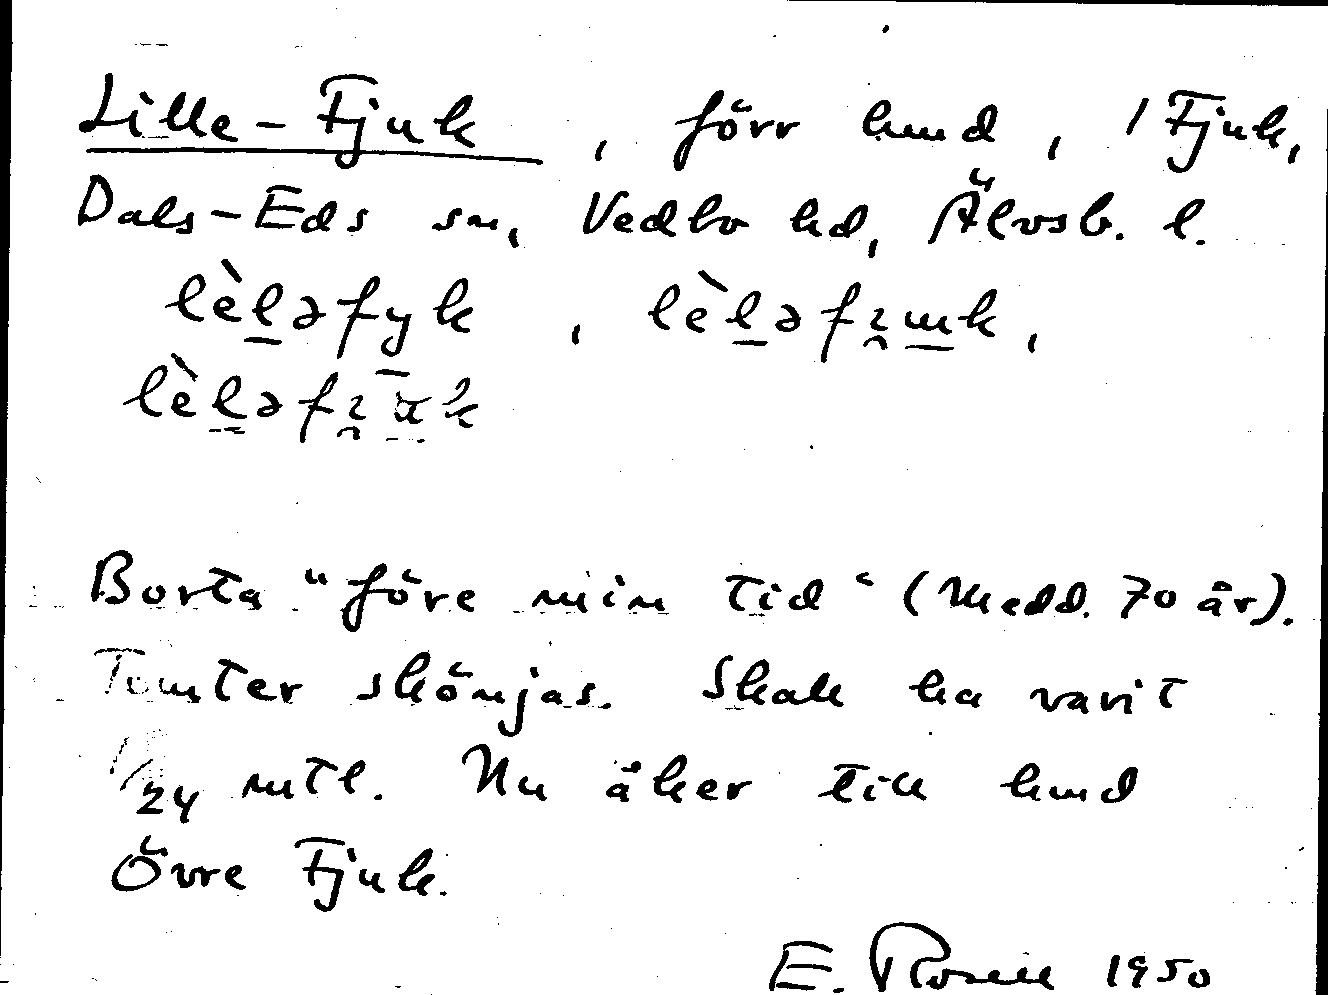 Lille-Fjuk, förr hmd, 1 Fjuk,
Dals-Eds sn, Vedbo hd, Älvsb. l.
lèləfyk, lèləfɩ̯ɯk,
lèləfɩ̯ʉk
Borta "före min tid" (Medd. 70 år).
Tomter skönjas. Skall ha varit
1/24 mtl. Nu åker till hmd
Övre Fjuk.
E. Rosell 1950